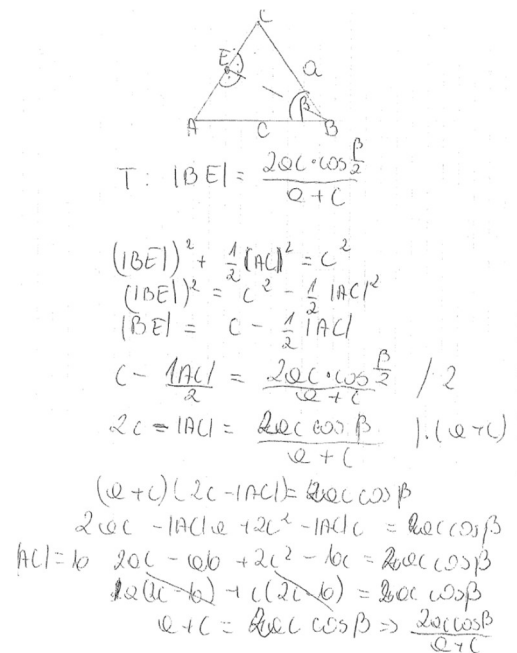 C
E
a
β
A
C
B
T: |BE| = 2ac·cos β/2 / a + c
(|BE|)² + 1/2 |AC|² = c²
(|BE|)² = c² - 1/2 |AC|²
|BE| = c - 1/2 |AC|
c - |AC|/2 = 2ac·cos β/2 / a + c /·2
2c - |AC| = 2ac cos β / a + c |·(a+c)
(a+c)(2c-|AC|) = 2ac cos β
2ac - |AC|a + 2c² - |AC|c = 2ac cos β
|AC| = b 2ac - ab + 2c² - bc = 2ac cos β
a(2c-b) + c(2c-b) = 2ac cos β
a+c = 2ac cos β => 2ac cos β / a+c